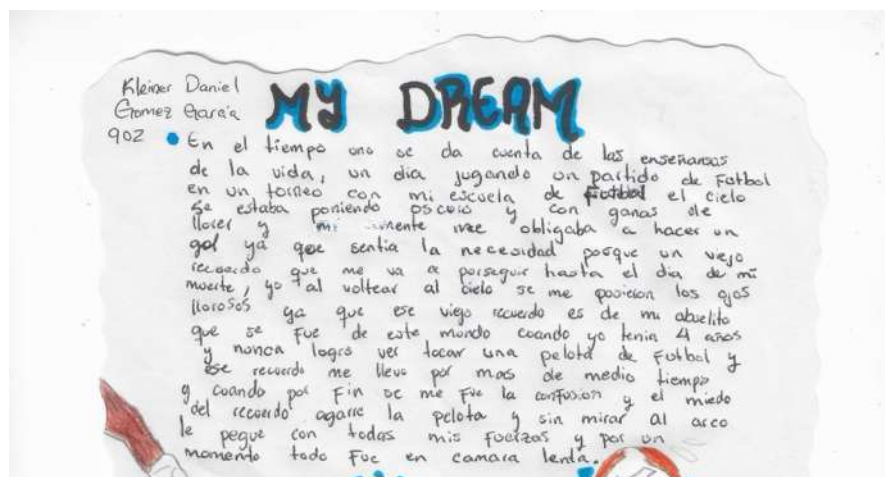 Kleiner Daniel
Gomez Garcia
902
MY DREAM
En el tiempo uno se da cuenta de las enseñansas
de la vida, un dia jugando un partido de Fotbol
en un torneo con mi escuela de Footbol el cielo
se estaba poniendo oscuro y con ganas de
llover y mi mente me obligaba a hacer un
gol ya que sentia la necesidad porque un viejo
recuerdo que me va a perseguir hasta el dia de mi
muerte, yo al voltear al cielo se me pusieron los ojos
llorosos ya que ese viejo recuerdo es de mi abuelito
que se fue de este mundo cuando yo tenia 4 años
y nunca logro ver tocar una pelota de Futbol y
ese recuerdo me llevo por mas de medio tiempo
y cuando por Fin se me Fue la confusion y el miedo
del recuerdo agarre la pelota y sin mirar al arco
le pegue con todas mis Fuerzas y por un
momento todo Fue en camara lenta.